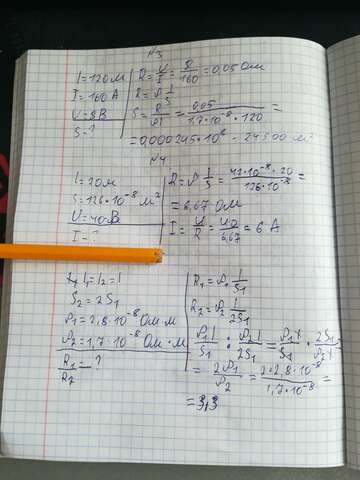 N3
l=120м
I=160А
U=8В
S-?
R=U/I=8/160=0,05 Ом
R=ρ l/S
S=R/ρl=0,05/1,7·10⁻⁸·120=
=0,000245·10⁸=24500 м²
N4
l=20м
S=126·10⁻⁸ м²
U=40В
I-?
R=ρ l/S=42·10⁻⁸·20/126·10⁻⁸=
=6,67 Ом
I=U/R=40/6,67=6 А
l₁=l₂=l
S₂=2S₁
ρ₁=2,8·10⁻⁸ Ом·м
ρ₂=1,7·10⁻⁸ Ом·м
R₁/R₂-?
R₁=ρ₁ l/S₁
R₂=ρ₂ l/2S₁
ρ₁l/S₁:ρ₂l/2S₁=ρ₁l/S₁·2S₁/ρ₂l
=2ρ₁/ρ₂=2·2,8·10⁻⁸/1,7·10⁻⁸=
=3,3